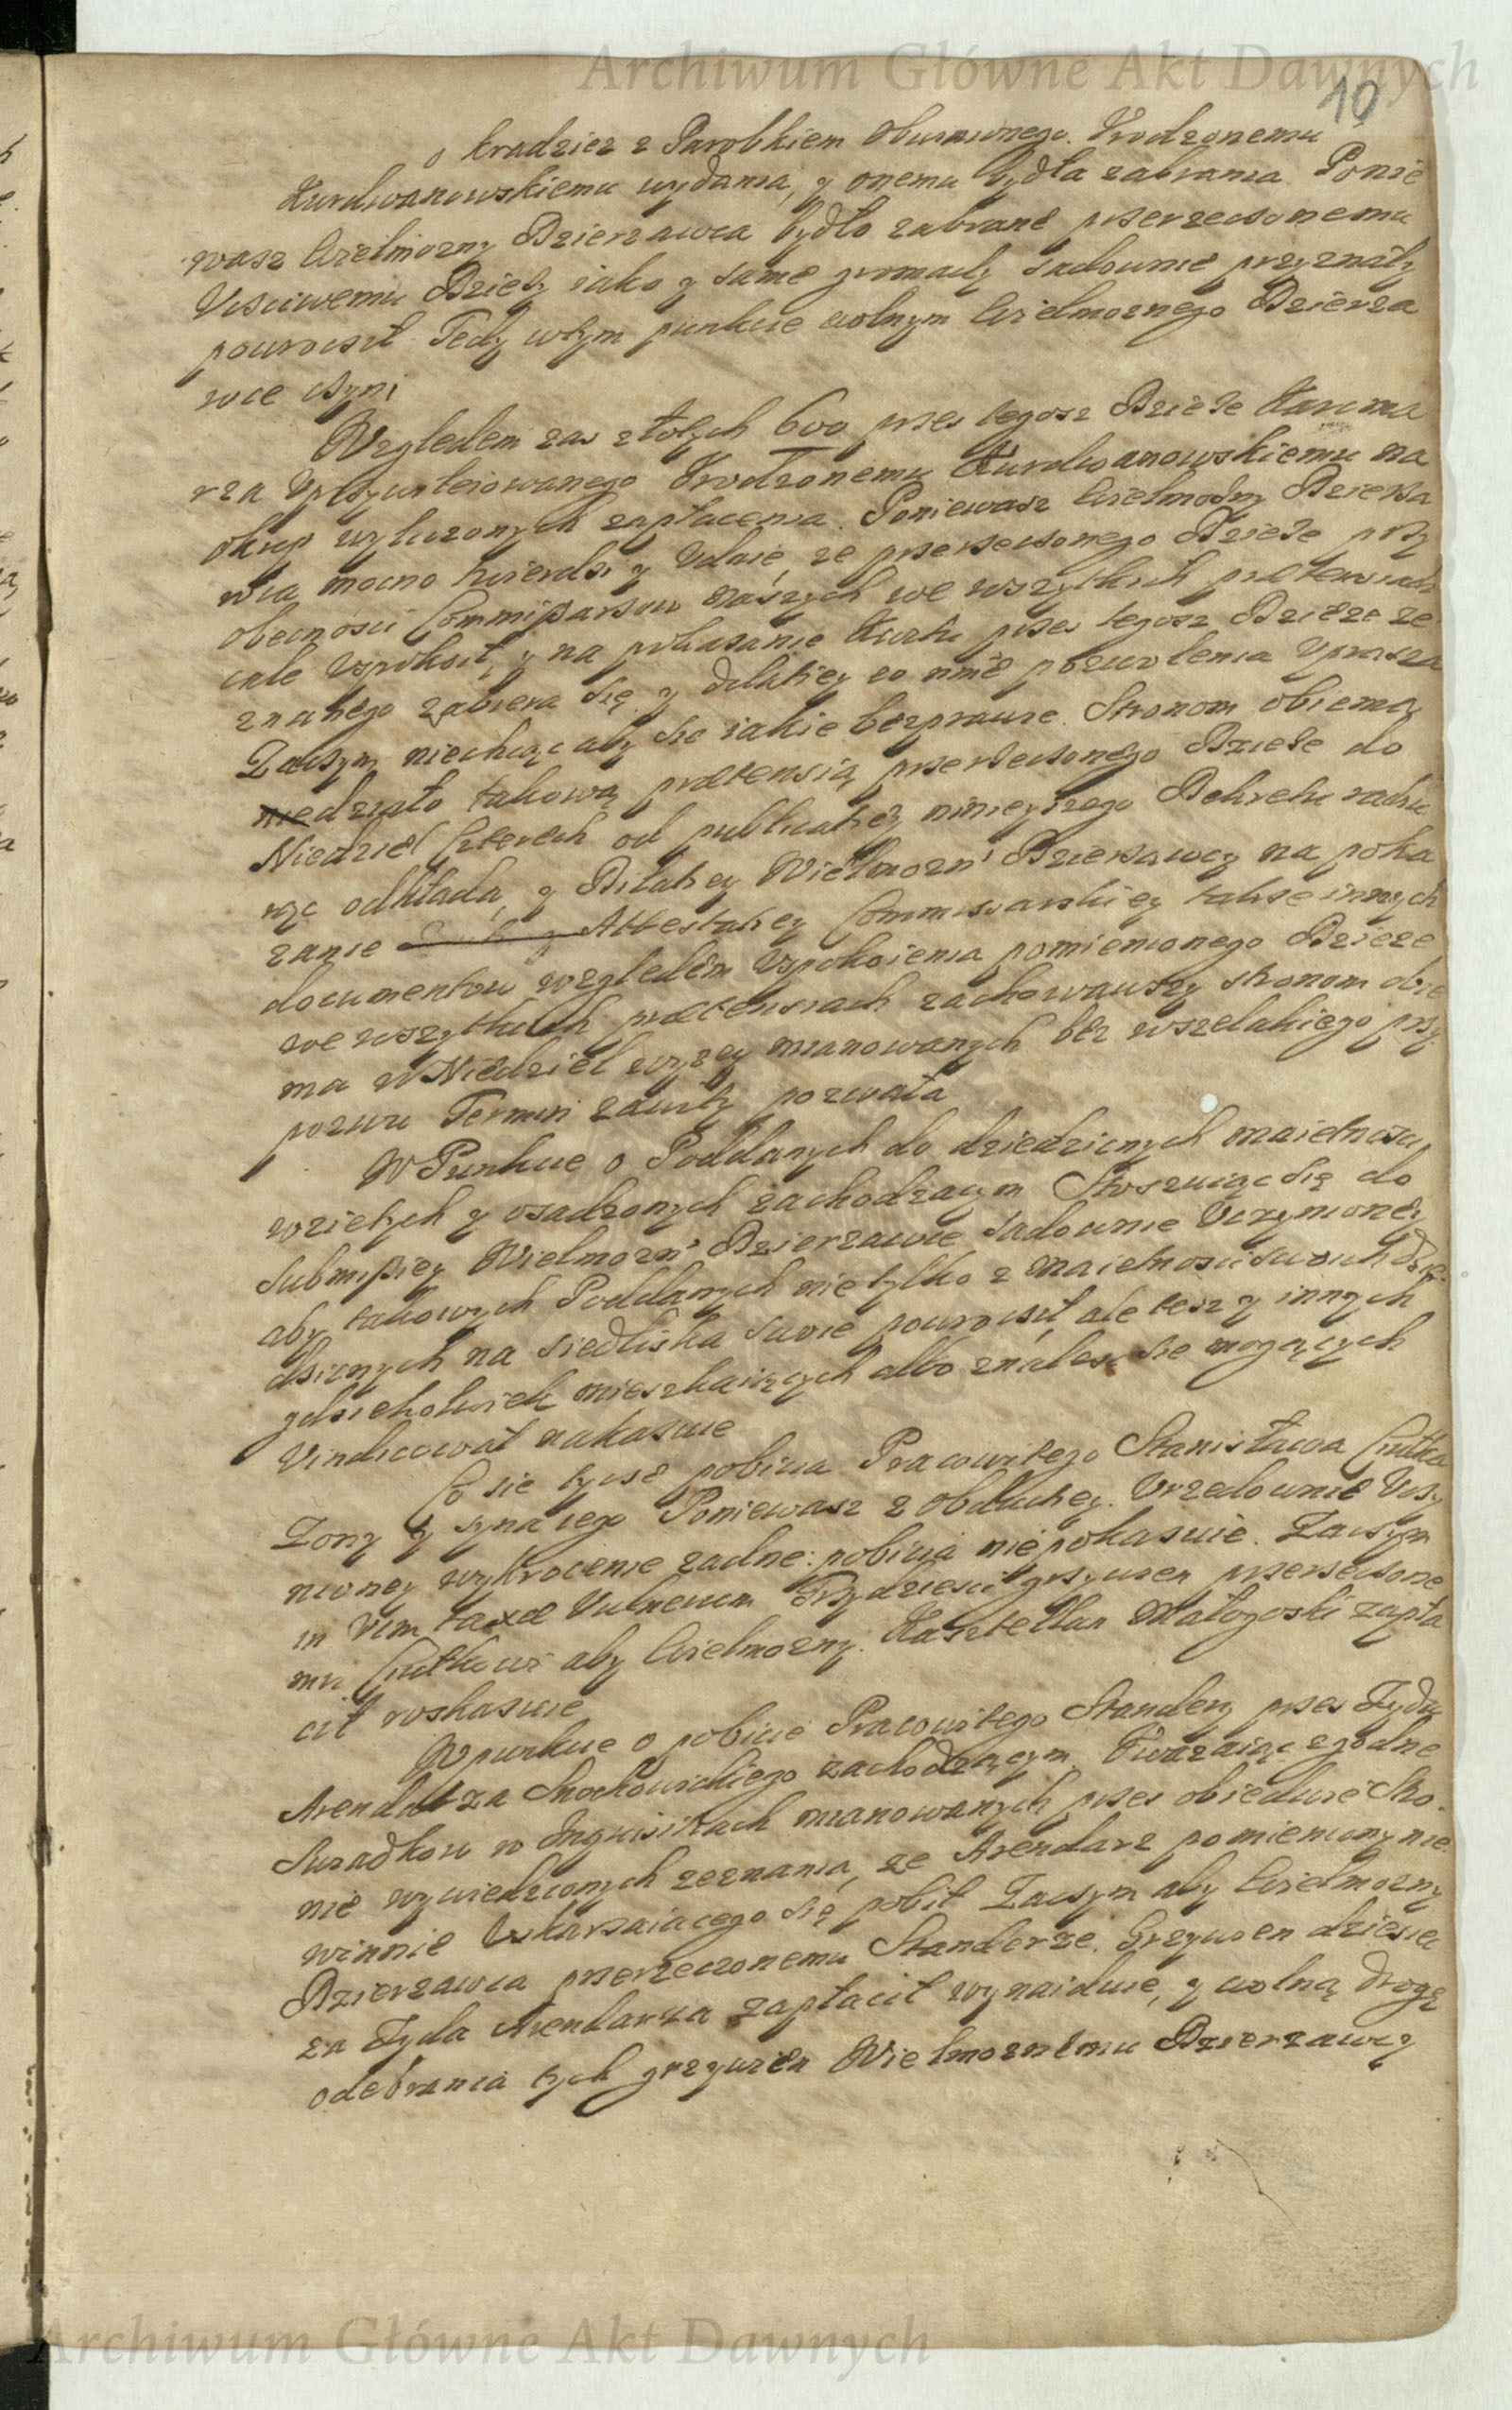 Archiwum Główne Akt Dawnych
10
o kradziez z Parobkiem Obwinionego. Urodzonemu
Kurdwanowskiemu wydania, y onemu bydła zabrania. Ponie
wasz Wielmozny Dzierzawca bydło zabrane przerzeczonemu
Ucsciwemu Dzieży iako y same gromady sadownie przyznały
powrocił. Tedy wtym punkcie wolnym Wielmoznego Dzierza
wce czyni
Względem zas złotych 600 przes tegosz Dzieże Karcma
rza Uprzywileiowanego Urodzonemu Kurdwanowskiemu na
okup wyliczonych zapłacenia. Poniewasz Wielmożny Dzierza
wca mocno twierdzi y Udaie, ze przerzeczonego Dzieże przy
obecnosci Commissarzow naszych we wszytkich pretensiach
cale Uspokoił, y na pokazanie Kwitu przes tegosz Dzieże ze
znanego zabiera się y dilatiey co nimè pozwolenia Uprasza
Zaczym niechcąc aby sie iakie bezprawie. Stronom obiema
działo takową praetensią przerzeczonego Dzieże do
Niedziel Czterech od publicatiey ninieyszego Dekretu rachu
iąc odkłada, y Dilatiey Wielmozn' Dzierzawcy na poka
zanie Attestatiey Commissarskiey takze innych
documentow względem Uspokoienia pomienionego Dzieze
we wszytkich praetensiach zachowawszy stronom obie
ma w Niedziel wyzey mianowanych bez wszelakiego przy
pozwu Termin zawity pozwala
W Punkcie o Poddanych do dziedzicznych maietnosci
wzietych y osadzonych zachodzacym Stoszuiąc się do
Submissiey Wielmozn' Dzierzawce sadownie Uczynioney
aby takowych Poddanych nie tylko z maietnosci swoich dzie
dzicznych na siedliska swoie powrocił, ale tesz y innych
gdziekolwiek mieszkaiących albo znalesc sie mogących
Vindicował nakazuie
Co sie tycze pobicia Pracowitego Stanisława Ciułka
Zony y syna iego Poniewasz z obductiey. Urzedownie Uczy
nioney wykrocenie zadne: pobicia niepokazuie. Zaczym
in Vim taxae Vulnerum Trzydziesci grzywien przerzeczone
mu Ciułkowi aby Wielmozny. Kasztellan Małogoski zapła
cił roskazuie
W punkcie o pobicie Pracowitego Standery przes Zyda
Arendarza Skockowskiego zachodzącym. Uwazaiąc zgodne
Swiadkow w Inquisitiach mianowanych przes obiedwie Stro.
nie wywiedzionych zeznania, ze Arendarz pomieniony nie
winnie Uskarzaiacego się pobił Zaczym aby Wielmozny
Dzierzawca przerzeczonemu Standerze. Grzywien dziesiec
za Zyda Arendarza zapłacił wynaiduie, y wolną drogę
odebrania tych grzywien Wielmoznemu Dzierzawcy
Archiwum Główne Akt Dawnych